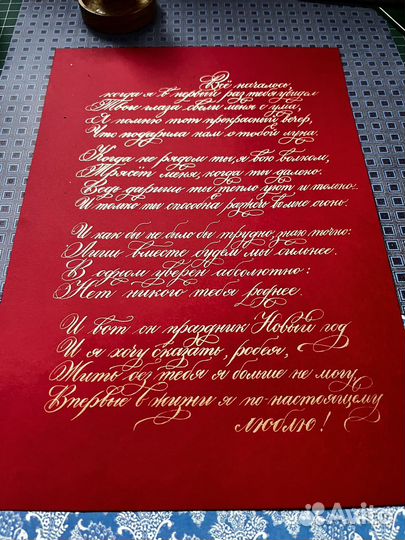 Всё началось,
когда я в первый раз тебя увидел
Твои глаза свели меня с ума,
Я помню тот прекрасный вечер,
Что подарила нам с тобой луна.
Когда не рядом ты, я вою волком,
Трясёт меня, когда ты далеко.
Ведь даришь ты тепло уют и
И только ты способна разжечь во мне огонь.
И как бы не было бы трудно, знаю точно:
Лишь вместе будем мы сильнее.
В одном уверен абсолютно:
Нет никого тебя роднее.
И вот он праздник Новый год
И я хочу сказать, робея,
Жить без тебя я больше не могу
Впервые в жизни я по-настоящему
люблю!
Avito